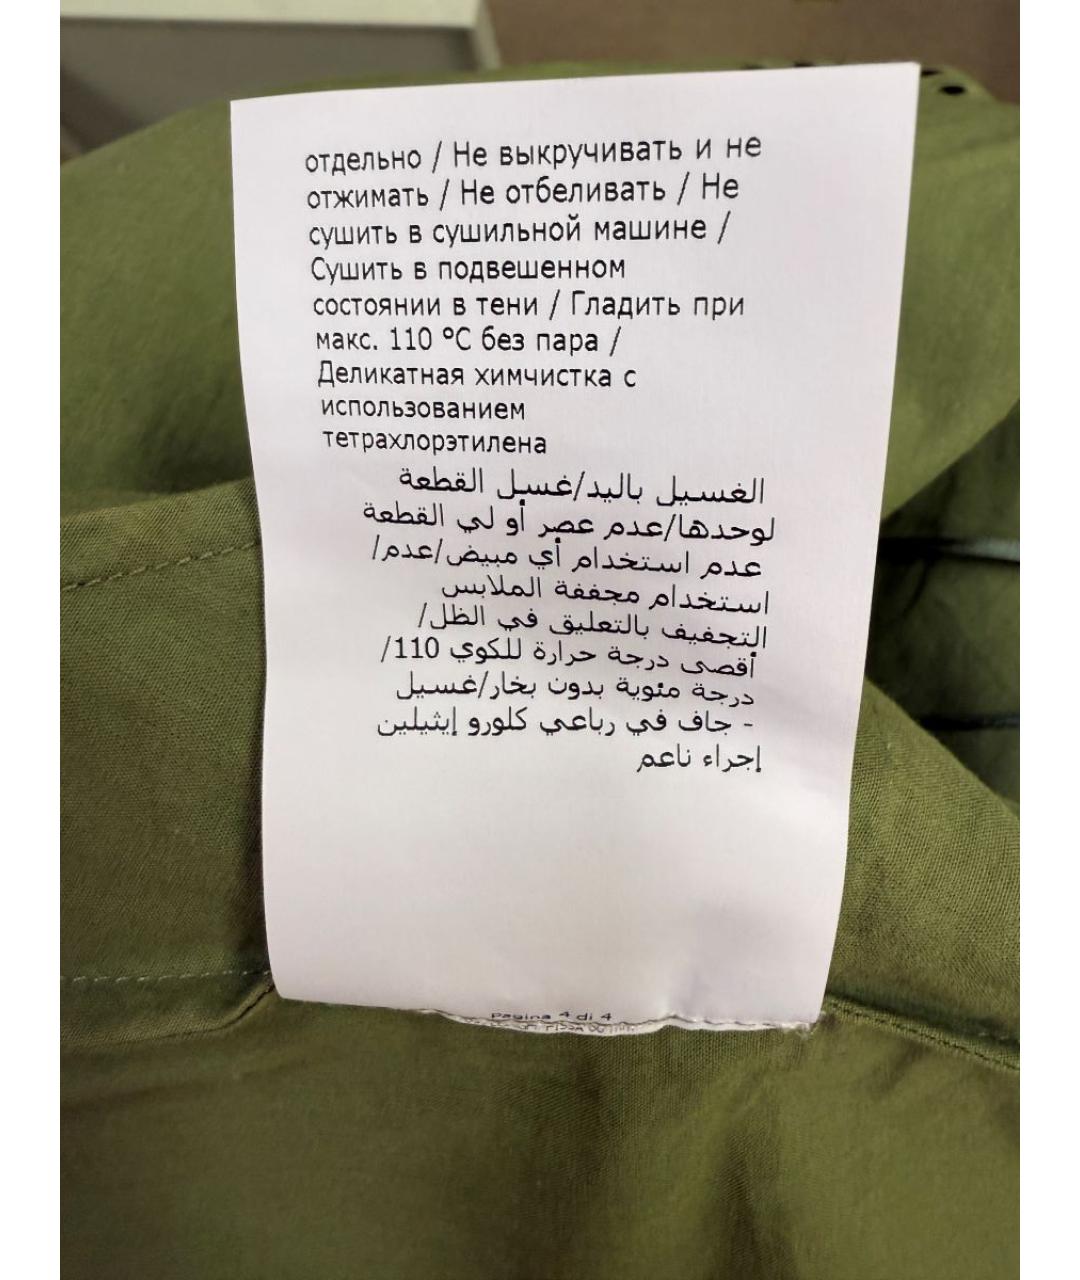 отдельно / Не выкручивать и не
отжимать / Не отбеливать / Не
сушить в сушильной машине /
Сушить в подвешенном
состоянии в тени / Гладить при
макс. 110 °C без пара /
Деликатная химчистка с
использованием
тетрахлорэтилена
الغسيل باليد/غسل القطعة
لوحدها/عدم عصر أو لي القطعة
عدم استخدام أي مبيض/عدم/
استخدام مجففة الملابس
التجفيف بالتعليق في الظل/
أقصى درجة حرارة للكوي 110/
درجة مئوية بدون بخار/غسيل
- جاف في رباعي كلورو إيثيلين
إجراء ناعم
pagina 4 di 4